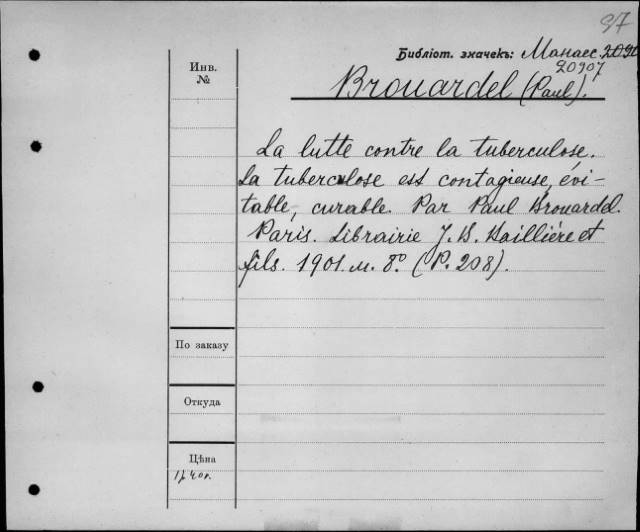 97
Библіот. значекъ: Манасс. 2090
20907
Инв.
№
Brouardel (Paul).
La lutte contre la tuberculose.
La tuberculose est contagieuse, évi-
table, curable. Par Paul Brouardel.
Paris. Librairie J. B. Baillière et
fils. 1901. in 8º. (P. 208).
По заказу
Откуда
Цѣна